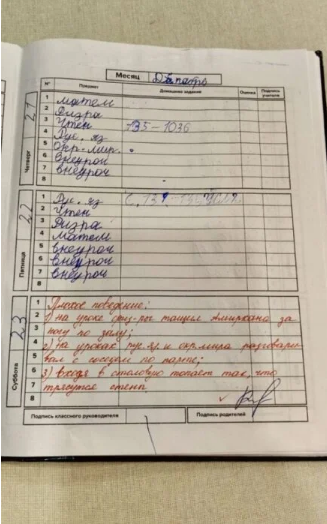 Месяц Декабрь
№ Предмет Домашнее задание Оценка Подпись учителя
Четверг 21
1 матем
2 физра
3 Чтен 135-
4 Рус. яз
5 Окр. мир.
6 внеуроч
7 внеуроч
8
Пятница 22
1 Рус. яз
2 Чтен
3 Физра
4 матем
5 внеуроч
6 внеуроч
7 внеуроч
8
Суббота 23
1 Плохое поведение:
2 1) на уроке физ-ры тащил Амирхана за
3 ногу по залу;
4 2) на уроках рус.яз и окр.мира разговари-
5 вал с соседом по парте;
6 3) входя в столовую топает так, что
7 трясутся стены.
8
Подпись классного руководителя Подпись родителей